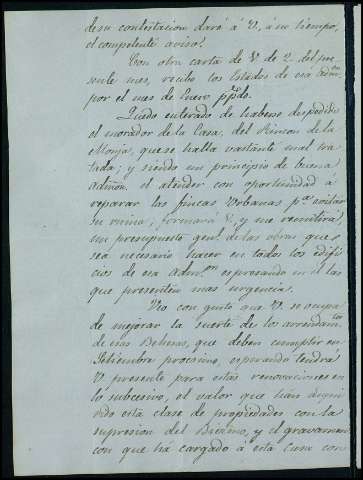 de su contestacion daré á V., á su tiempo,
el competente aviso.
Con otra carta de V. de 2. del pre-
sente mes, recibo los Estados de esa Admon.
por el mes de Enero ppdo.
Quedo enterado de haberse despedido
el morador de la Casa, del Rincon de la
Monja, que se halla bastante mal tra-
tada; y siendo un principio de buena
admon. el atender con oportunidad á
reparar las fincas Urbanas pa. evitar
su ruina; formará V. y me remitirá
un presupuesto genl. de las obras que
sea necesario hacer en todos los edifi-
cios de esa Admon. espresando en él las
que presenten mas urgencia.
Veo con gusto que V. se ocupa
de mejorar la suerte de los arrendamtos.
de esas que deben cumplir en
Setiembre procsimo, esperando tendrá
V. presente para estas renovaciones en
lo subcesivo, el valor que han adquiri-
do esta clase de propiedades con la
supresion del Diezmo, y el gravamen
con que há cargado á esta Casa con